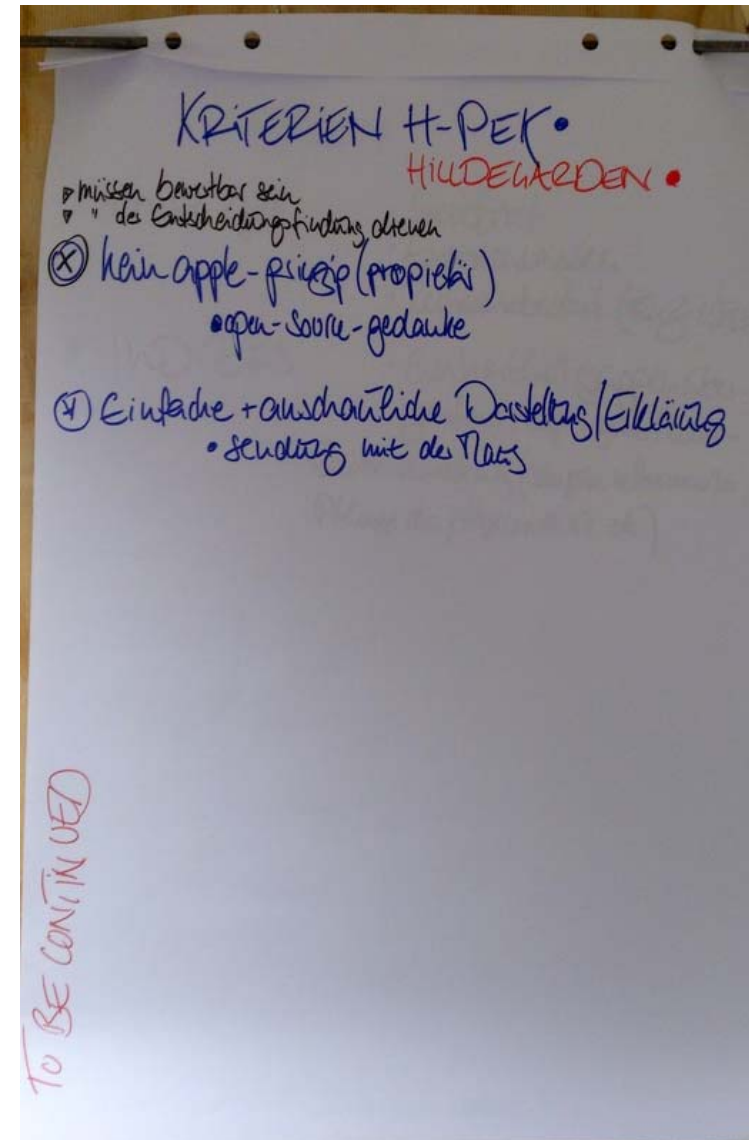 KRITERIEN H-PEK •
HILLDEGARDEN •
▹ müssen bewertbar sein
▹ " der Entscheidungsfindung dienen
ⓧ kein apple-prinzip (propietär)
• open-source-gedanke
Einfache + anschauliche Darstellung/Erklärung
• Sendung mit der Maus
TO BE CONTINUED